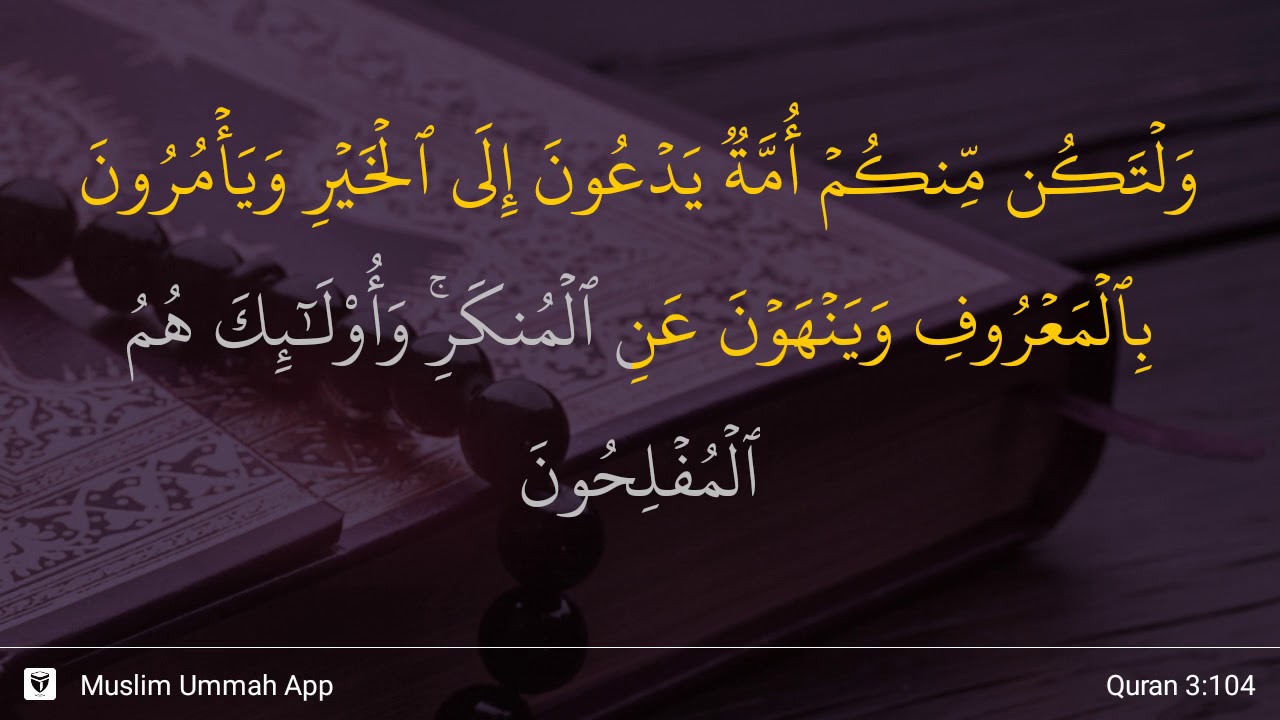 وَلۡتَكُن مِّنكُمۡ أُمَّةٞ يَدۡعُونَ إِلَى ٱلۡخَيۡرِ وَيَأۡمُرُونَ
بِٱلۡمَعۡرُوفِ وَيَنۡهَوۡنَ عَنِ ٱلۡمُنكَرِۚ وَأُوْلَـٰٓئِكَ هُمُ
ٱلۡمُفۡلِحُونَ
Muslim Ummah App
Quran 3:104